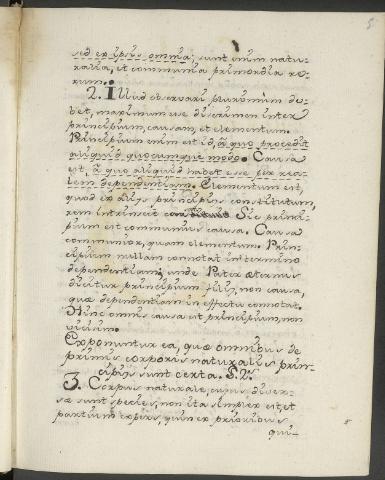 sed ex ipsis omnia; sunt enim natu-
ralia, et communia primordia re-
rum.
2. Illud observari plurimum de-
bet, maximum esse discrimen inter
principium, causam, et elementum.
Principium enim est id, à quo procedit
aliquid quocumque modo. Causa
est, à quo aliquid habet esse per rea-
lem dependentiam. Elementum est,
quod ex aliis principiis constitutum,
rem intrinsece constituit. Sic princi-
pium est communius causa. Causa
communior, quam elementum. Prin-
cipium nullam connotat in termino
dependentiam; unde Pater æternus
dicitur principium filii, non causa,
quæ dependentiam in effectu connotat.
Hinc omnis causa est principium, non
vicissim.
Exponuntur ea, quæ omnibus de
primis corporis naturalis prin-
cipiis sunt certa. §. V.
3. Corpus naturale, cujus diver-
sæ sunt species, non ita simplex est, et
partium expers, quin ex prioribus
qui-